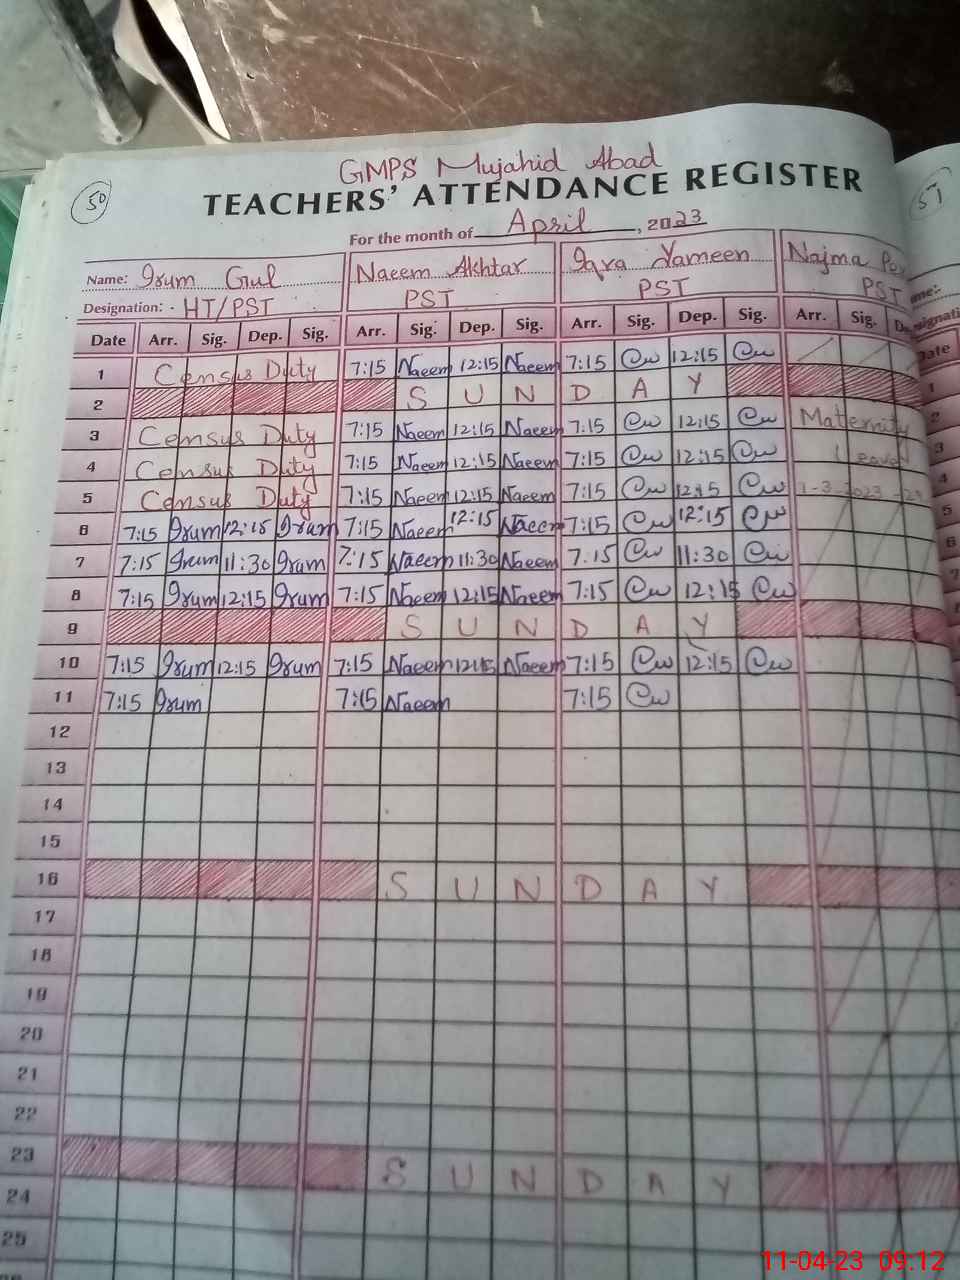 GMPS Mujahid Abad
50 TEACHERS' ATTENDANCE REGISTER 57
For the month of April, 2023
Name: Irum Gul Naeem Akhtar Iqra Yameen Najma
Designation: HT/PST PST PST PST
Date Arr. Sig. Dep. Sig. Arr. Sig. Dep. Sig. Arr. Sig. Dep. Sig. Arr. Sig. Date
1 Census Duty 7:15 Naeem 12:15 Naeem 7:15 12:15 1
2 SUNDAY 2
3 Census Duty 7:15 Naeem 12:15 Naeem 7:15 12:15 Maternity 3
4 Census Duty 7:15 Naeem 12:15 Naeem 7:15 12:15 Leave 4
5 Census Duty 7:15 Naeem 12:15 Naeem 7:15 12:15 1-3-2023 5
6 7:15 Irum 12:15 Irum 7:15 Naeem 12:15 Naeem 7:15 12:15 6
7 7:15 Irum 11:30 Irum 7:15 Naeem 11:30 Naeem 7:15 11:30 7
8 7:15 Irum 12:15 Irum 7:15 Naeem 12:15 Naeem 7:15 12:15
9 SUNDAY
10 7:15 Irum 12:15 Irum 7:15 Naeem 12:15 Naeem 7:15 12:15
11 7:15 Irum 7:15 Naeem 7:15
12
13
14
15
16 SUNDAY
17
18
19
20
21
22
23 SUNDAY
24
25
11-04-23 09:12